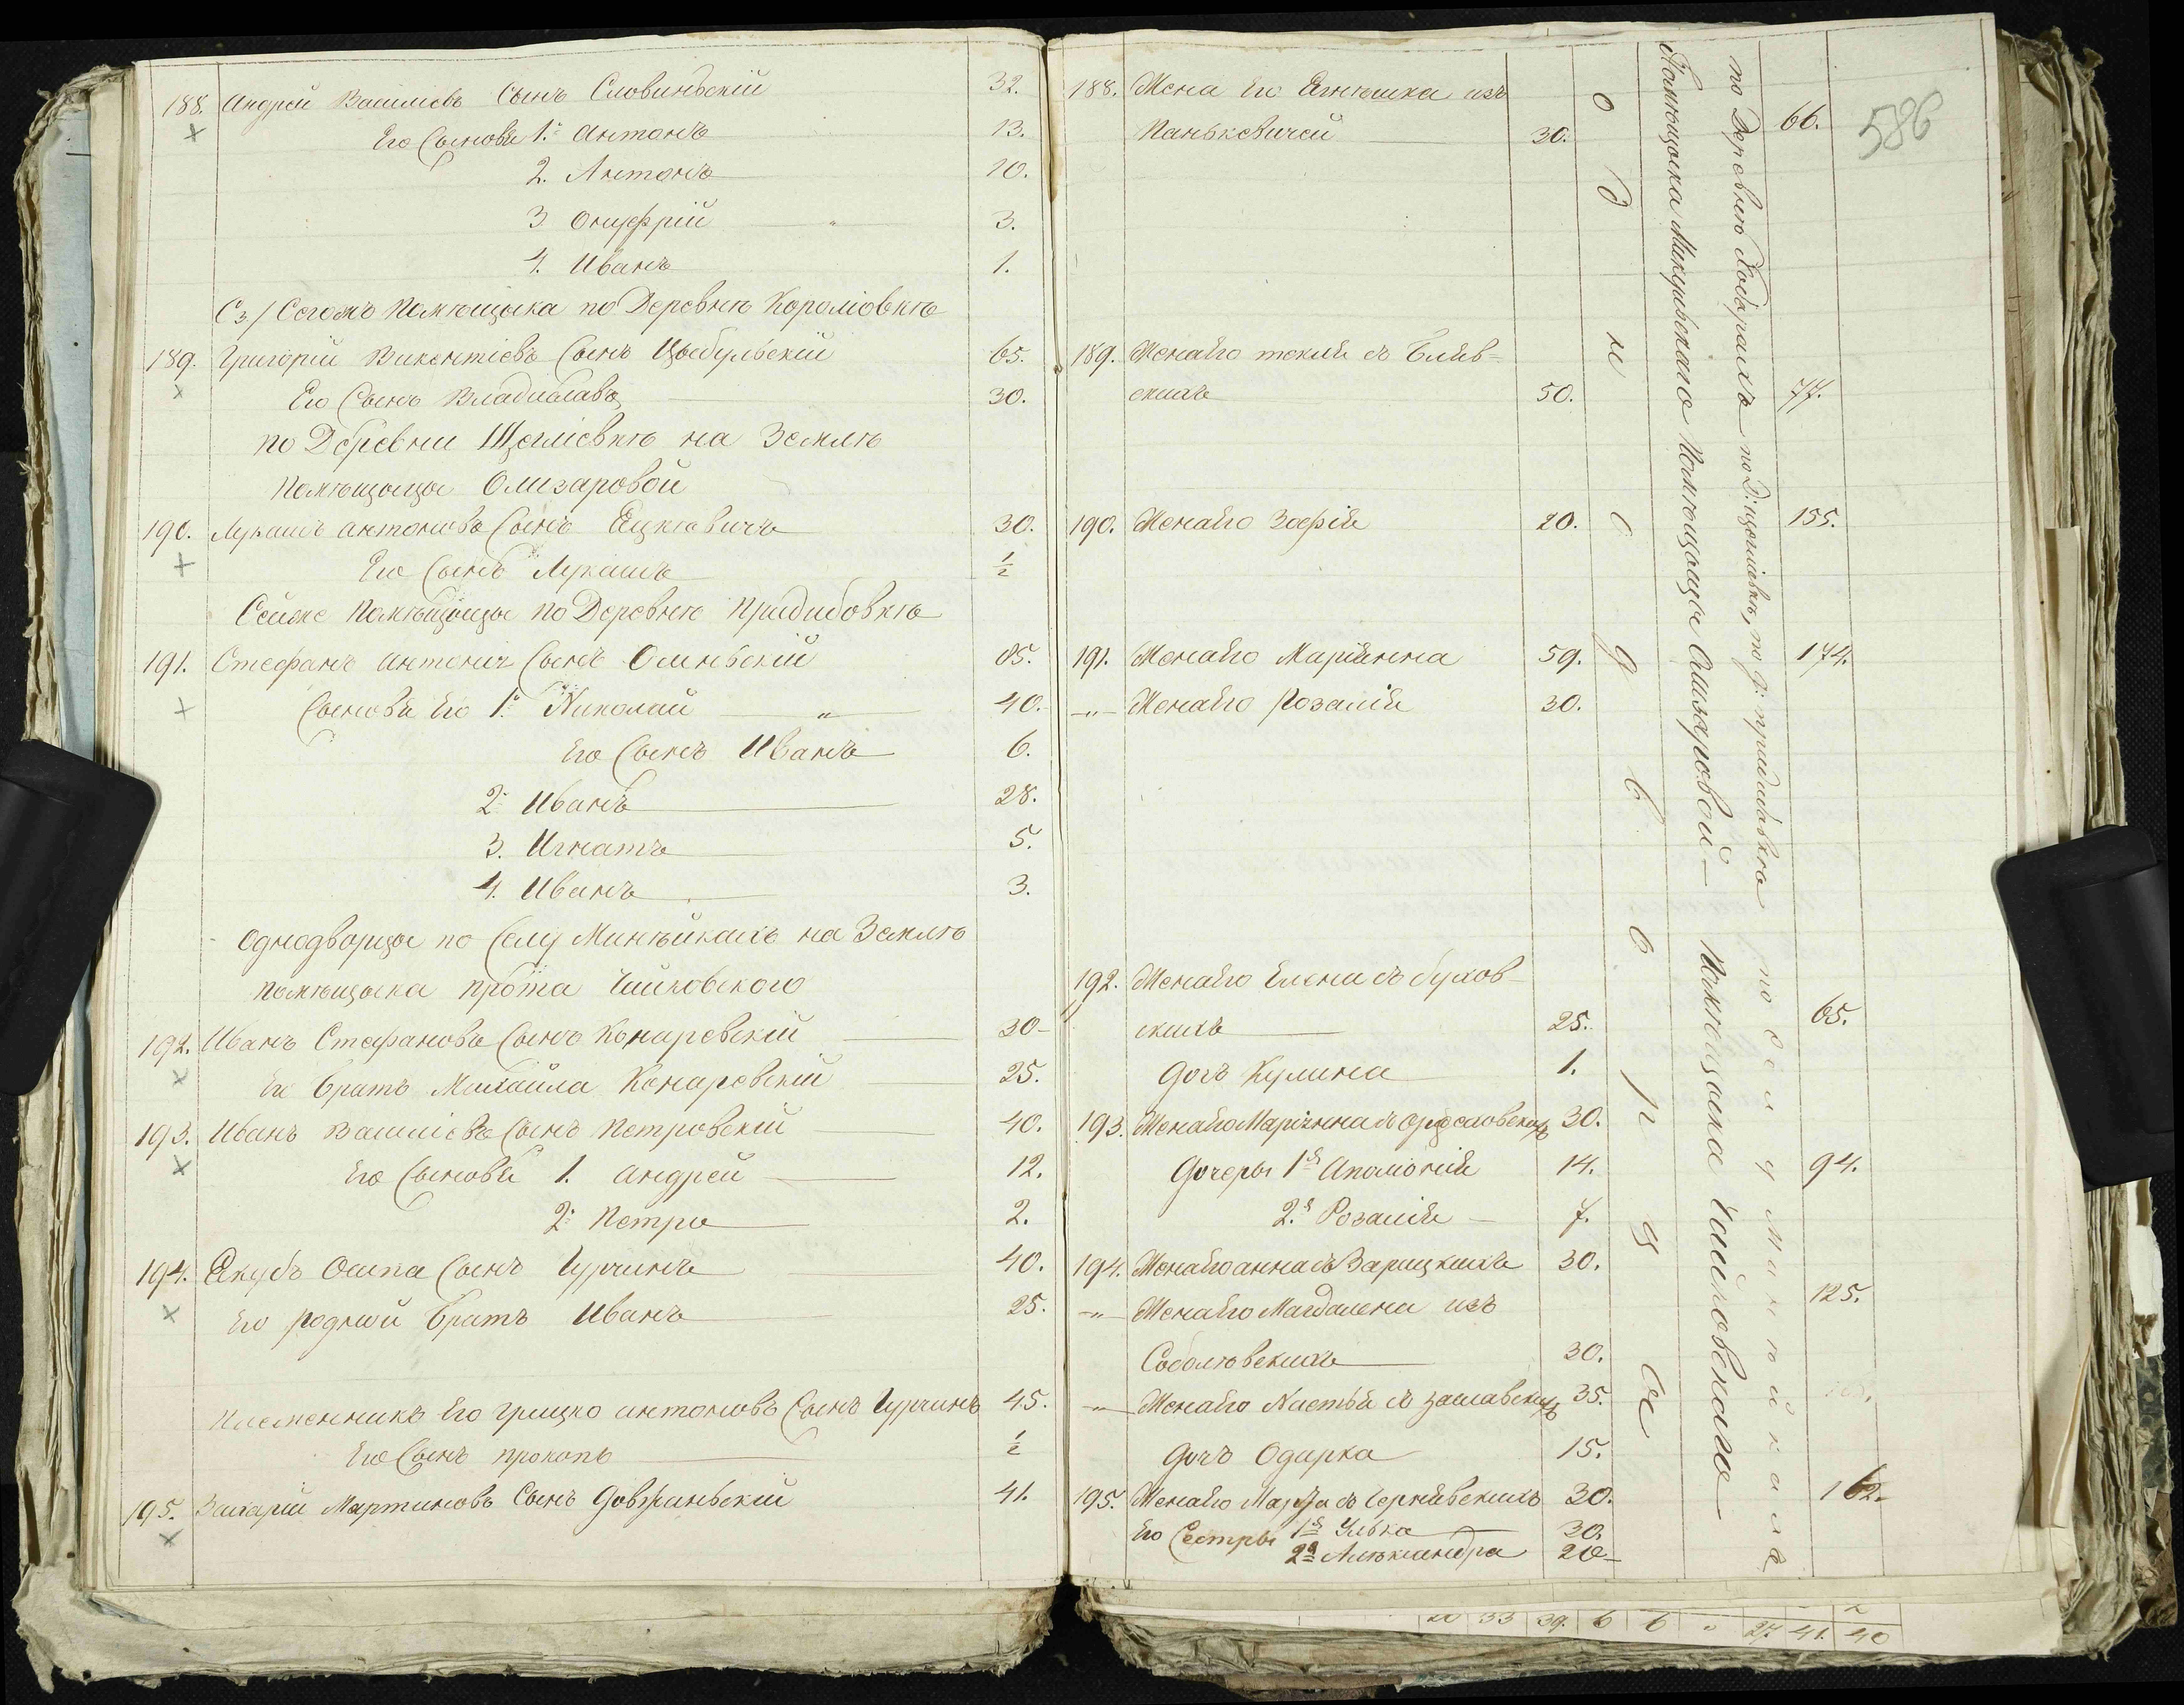 188. Андрей Василіевъ Сынъ Словинскій 32.
Его Сыновья 1. Антонъ 13.
2. Антонъ 10.
3 Онуфрій 3.
4. Иванъ 1.
Помѣщыка по Деревнѣ Короліовкѣ
189. Григорій Викентіевъ Сынъ Цыбульскій 65.
Его Сынъ Владиславъ 30.
по Деревни Щегліевкѣ на Землѣ
Помѣщыцы Олизаровой
190. Лукашъ Антоновъ Сынъ Яцкевичъ 30.
Его Сынъ Лукашъ ½
Сейже Помѣщыцы по Деревнѣ Придибовкѣ
191. Стефанъ Антонія Сынъ 85.
Сыновья Его 1. Николай 40.
Его Сынъ Иванъ 6.
2. Иванъ 28.
3. Игнатъ 5.
4. Иванъ 3.
Однодворцы по Селу Минѣйкахъ на Землѣ
помѣщыка прота Чайковского
192. Иванъ Стефановъ Сынъ Конаревскій 30
Его братъ Михайла Конаревскій 25.
193. Иванъ Василіевъ Сынъ Петровскій 40.
Его Сыновья 1. Андрей 12.
2. Петръ 2.
194. Якубъ Осипа Сынъ Чурчинъ 40.
Его родной братъ Иванъ 25.
Племенникъ Его Грицко Антоновъ Сынъ Чурчинъ 45.
Его Сынъ Прокопъ ½
195. Захарій Мартиновъ Сынъ 41.
188. Жена Его изъ
Панькевичей 30. 66.
586
189. Жена Его
скихъ 50. 77.
190. Жена Его Зофія 20. 155.
191. Жена Его Маріянна 59. 174.
Жена Его Розалія 30.
192. Жена Его Елена съ Буков-
скихъ 25. 65.
Дочь Кулина 1.
193. Жена Его Маріянна 30.
Дочеры 1я Аполонія 14. 94.
2я Розалія 7.
194. Жена Его Анна съ Зарицкихъ 30.
Жена Его Магдалена изъ 125.
Соболювскихъ 30.
Жена Его Настья съ Заславскихъ 35.
Дочь Одарка 15.
195. Жена Его Марья съ Чернявскихъ 30. 162.
Его Сестры 1я Улька 30.
2я Александра 20
однодворца
Помѣщыка Помѣщыцы Олизаровой
Помѣщыка Чайковскаго
по Деревнѣ
по селу Минѣйкахъ
33 39. 6 6 27. 41. 40